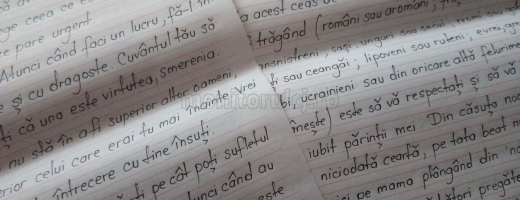 ege ceea ce
te pare urgent.
Atunci când faci un lucru, fă-l în
e și cu dragoste. Cuvântul tău să
ți că una este virtutea, smerenia.
nu stă în a fi superior altor oameni,
erior celui care erai tu mai înainte vrei
întrecere cu tine însuți.
ți pe cât poți sufletul
unci când au
este
a acest ceas de
trăgând (români sau aromâni,
nsnistreni, sași, unguri sau
ți sau ceangăi; lipoveni sau ruteni; evrei,
i, ucrainieni sau din oricare altă felurime
nește) este să vă respectați și să vă
iubit părinții mei. Din căsuța noa
niciodată ceartă, pe tata beat n
ici pe mama plângând din
pregăte
monitorulsj.ro